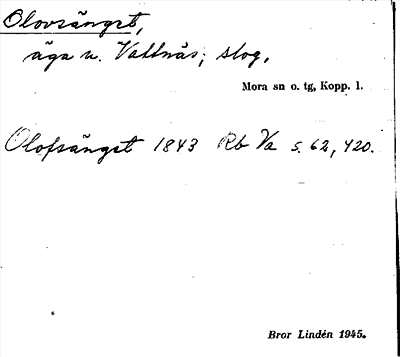 Olovsänget,
äga u. Vattnäs; slog.
Mora sn o. tg, Kopp. l.
Olofsänget 1843 Rb Va s. 62, 420.
Bror Lindén 1945.